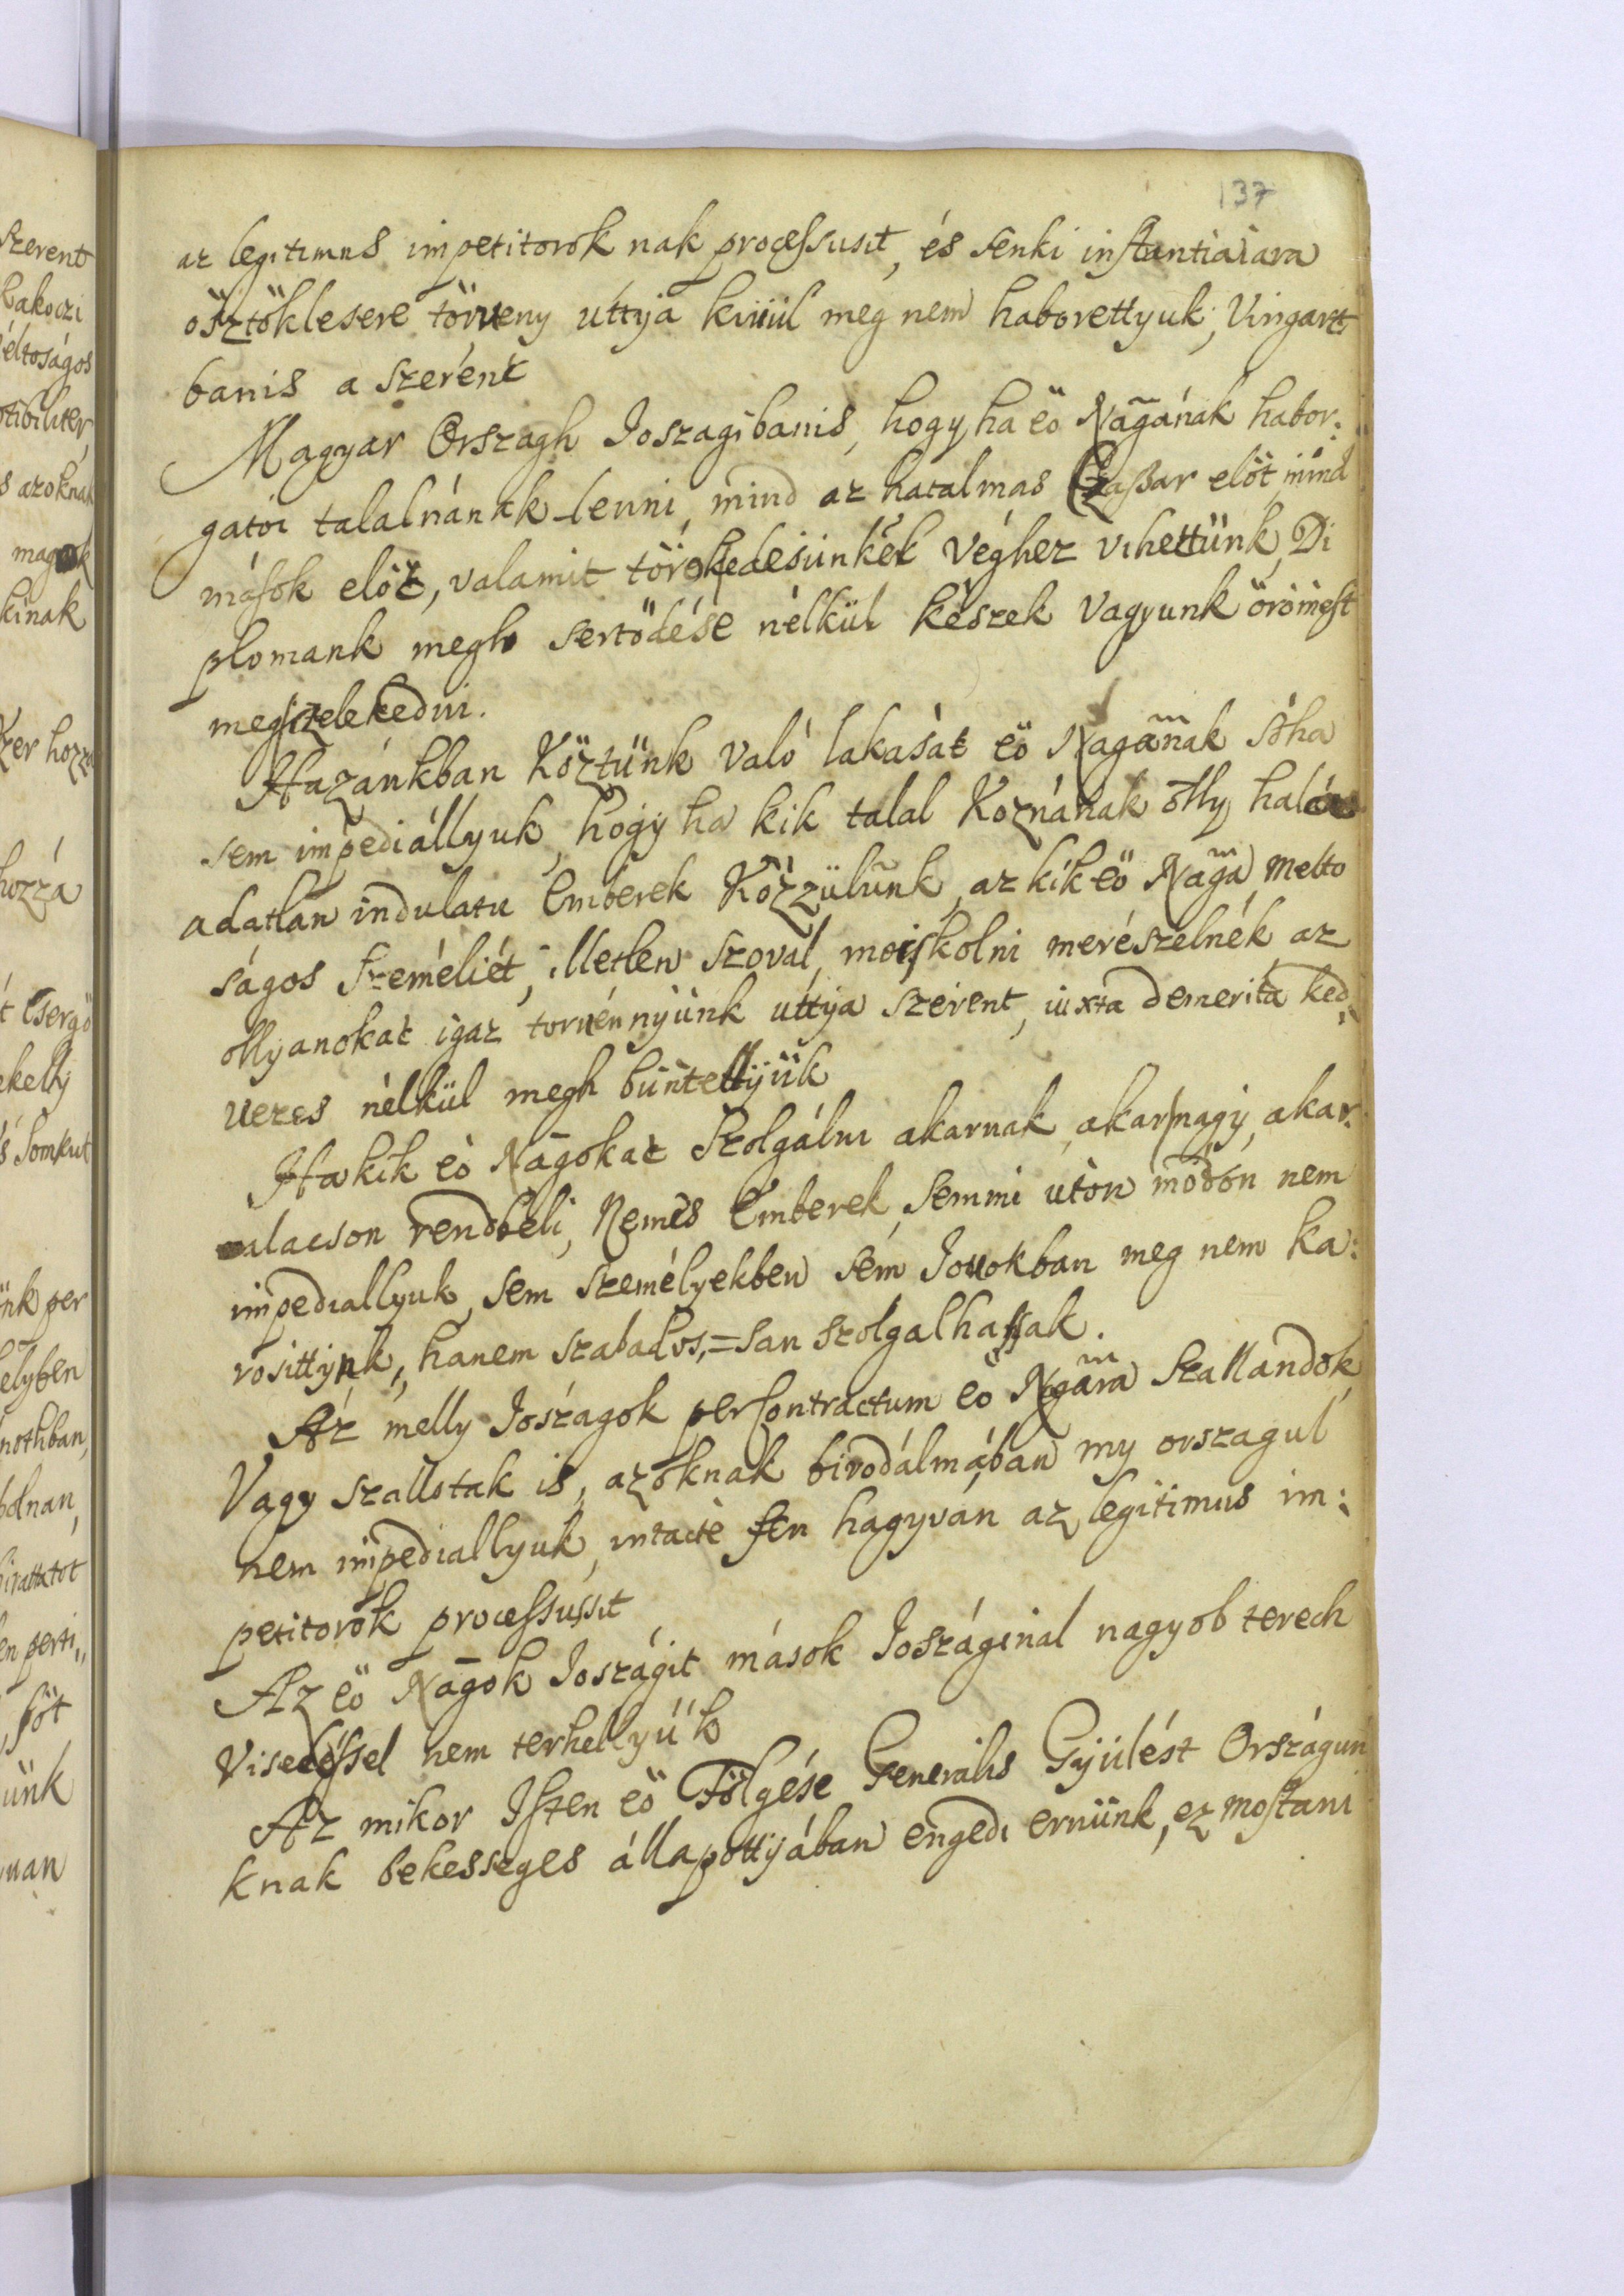 szerent
Rakoczi
éltoságos
s azokna
magok
kinak
hozzá
137
az legitimus impetitoroknak processusit, és senki instantiaiara
ösztöklesere törveny uttya kiuül meg nem haborettyuk, Vingart
banis a szerént
Magyar Orszagh Ioszagibanis, hogy ha eö Nagának habor:
gatoi talalnának lenni, mind az hatalmas Czaßar elöt mind
mások elöt, valamit törekedesünkkel véghez vihettünk, Di
plomank megh sertödése nélkül készek vagyunk örömest
megczelekedni.
Hazánkban Köztünk való lakasát eö Nagának soha
sem impediállyuk, hogy ha kik talal Koznának olly halá
adatlan indulatu Emberek Közzülünk, az kik eö Naga Melto
ságos Személiét, illetlen szoval, moiskolni merészelnék, az
ollyanokat igaz toruénnyünk uttya szerent, iuxta demerita ked,
uezes nélkül megh büntettyük
Ha kik eö Nagokat Szolgálni akarnak, akar nagy, akar
alacson rendbeli, Nemes Emberek, semmi uton modon nem
impediallyuk, sem személyekben sem Iouokban meg nem ka:
rosittyuk, hanem szabados,=san szolgalhassak.
Az melly Ioszágok per Contractum eö Ngara Szallandok,
Vagy szallotak is, azoknak birodálmában my orszagul
nem impediallyuk, intacte fen hagyván az legitimus im:
petitorok processussit
Az eö Nagok Ioszágit mások Ioszáginal nagyob terech
Viseléssel nem terhellyük
Az mikor Isten eö Fölgése Generalis Gyülést Országun
knak bekesseges állapottyában engedi ernünk, ez mostani